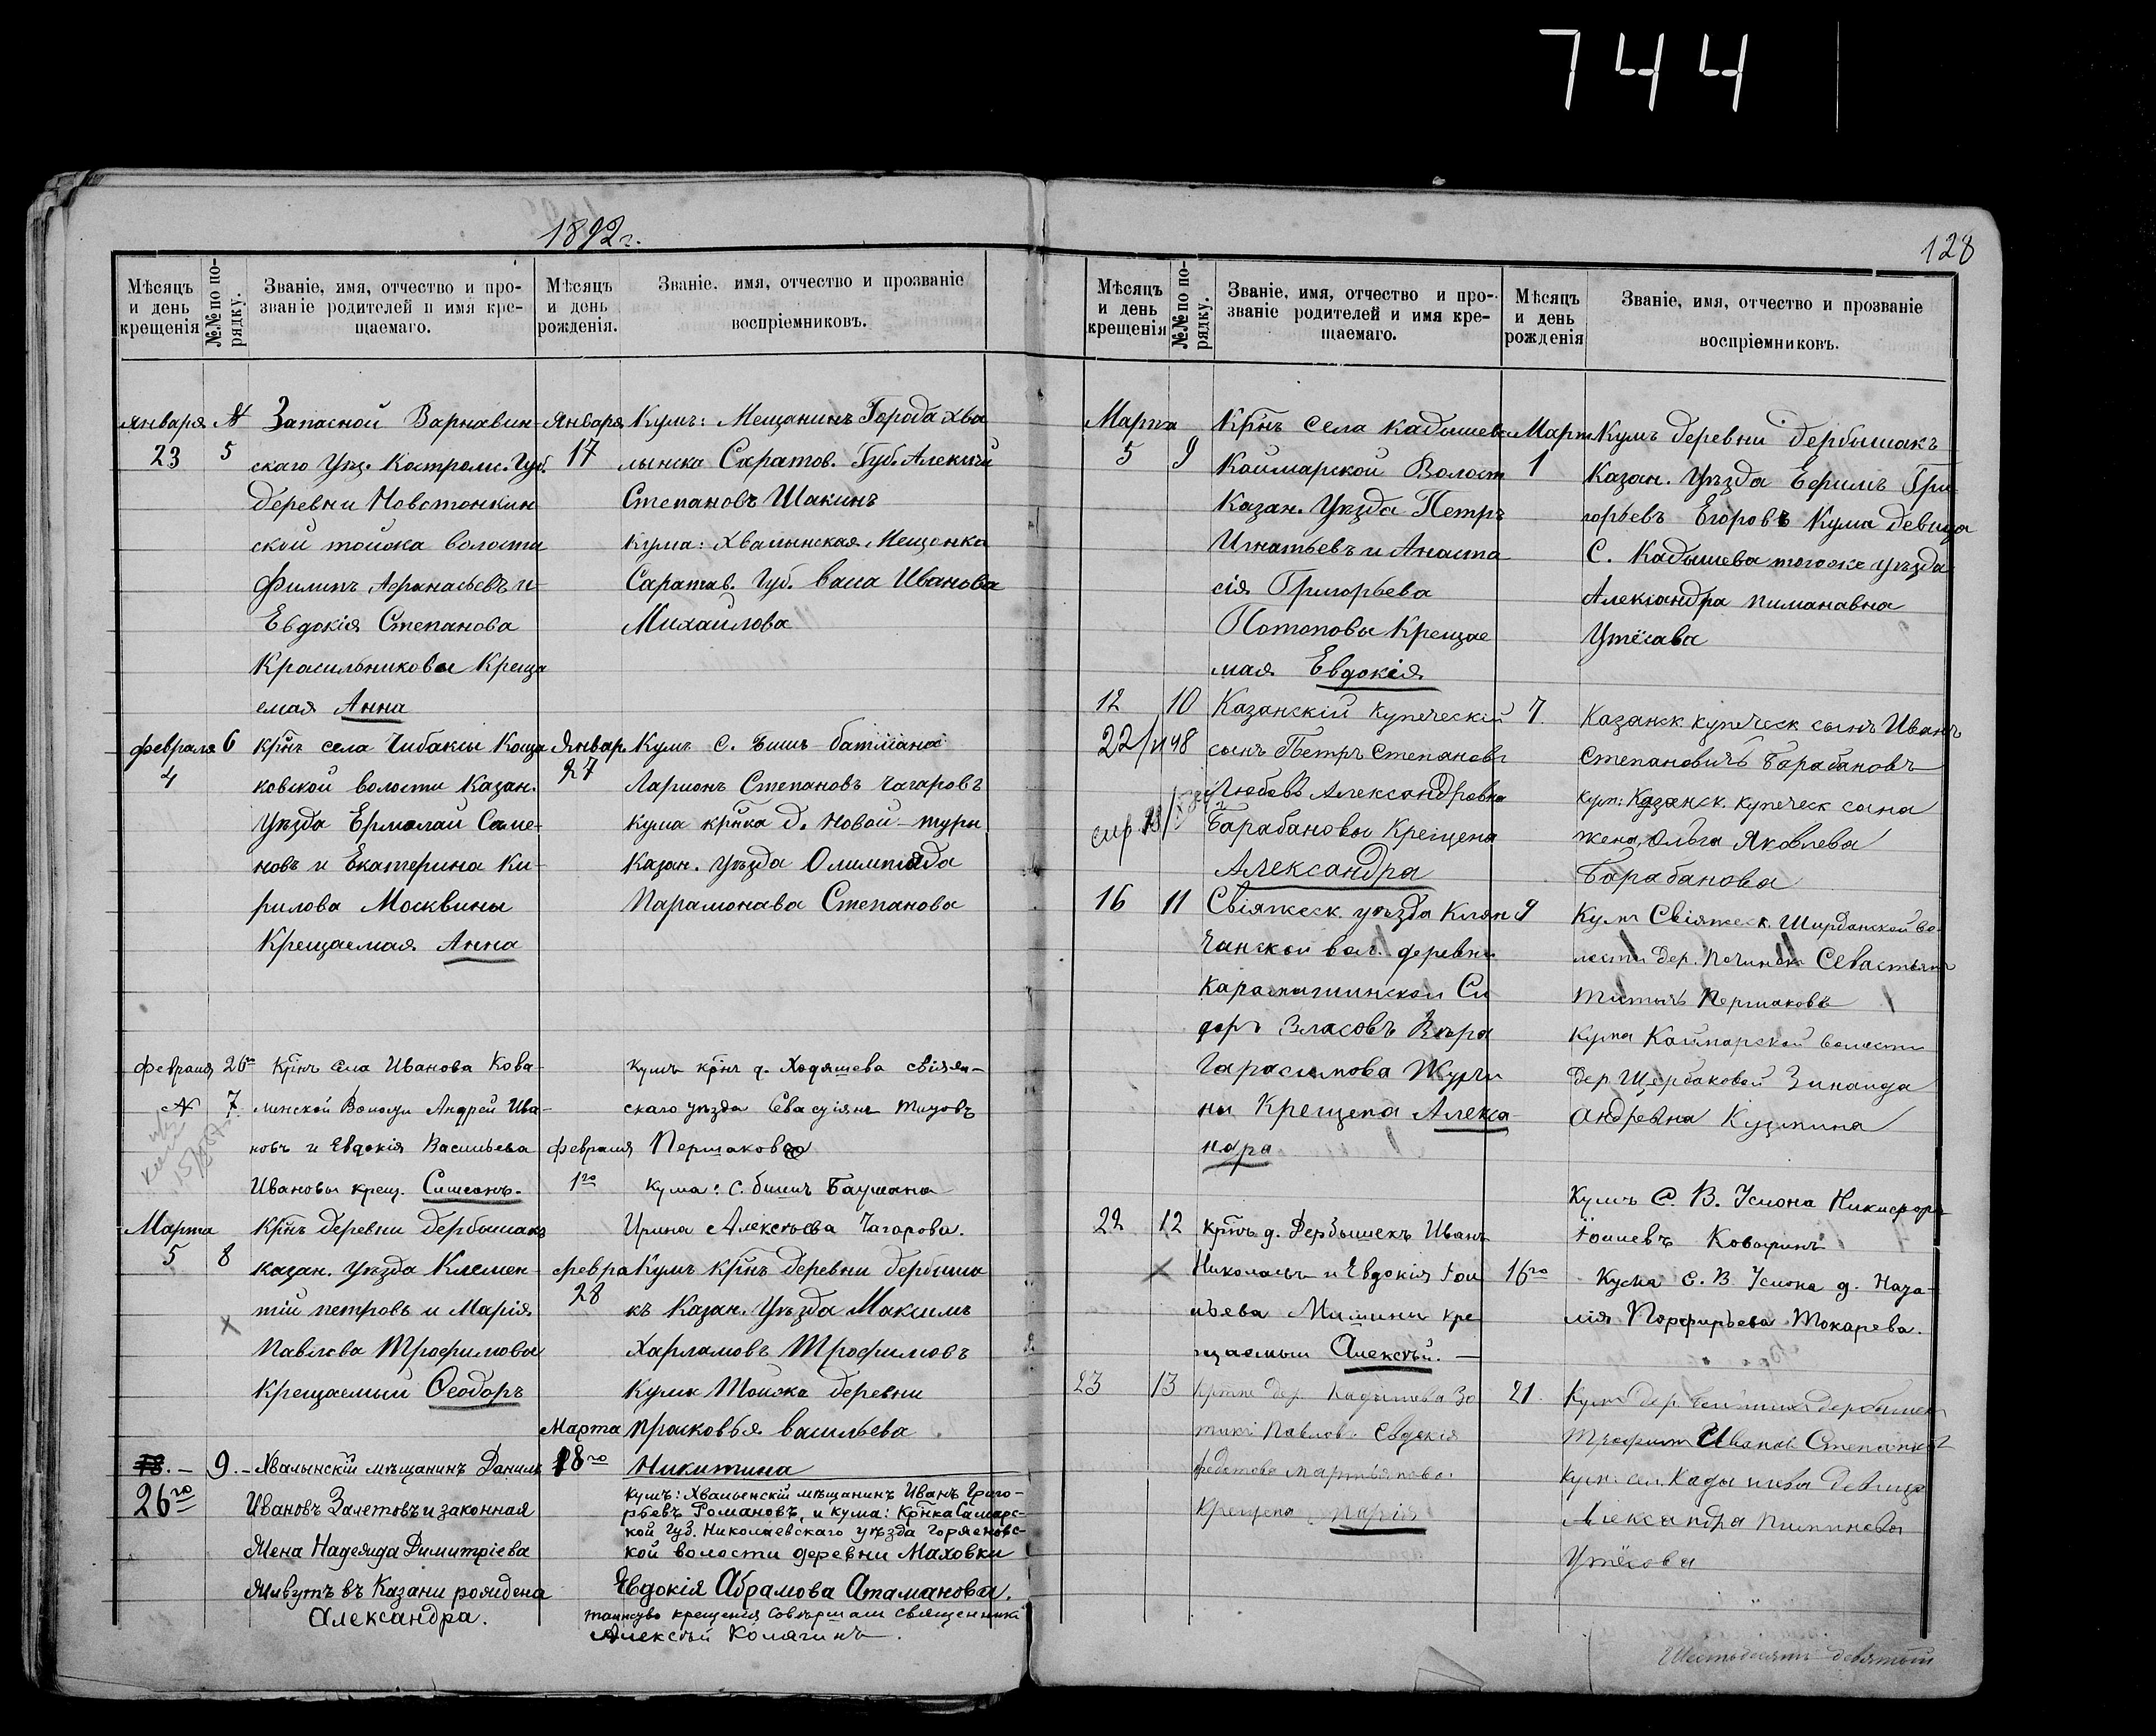 744
1892 г.
128
Мѣсяцъ и день крещенія
№№ по порядку.
Званіе, имя, отчество и прозваніе родителей и имя крещаемаго.
Мѣсяцъ и день рожденія.
Званіе, имя, отчество и прозваніе воспріемниковъ.
Января 23
№ 5
Запасной Варнавин-
скаго Уѣз. Костром. Губ.
деревни
ской тойжа волости
Филипъ Афанасьевъ и
Евдокія Степанова
Красильниковы Креща
емая Анна
Января 17
Кумъ: Мещанинъ Города Хва
лынска Саратов. Губ. Алексѣй
Степановъ Шакинъ
Кума: Хвалынская Мещанка
Саратав. Губ. Васа Иванова
Михаилова
февраля 4
6
крнъ села Чибаксы Коща
ковской волости Казан.
Уѣзда Ермолай Саме-
новъ и Екатерина Ки-
рилова Москвины
Крещаемая Анна
Январ. 27
Кумъ с. бишъ-батмана
Ларионъ Степановъ Чагаровъ
Кума крнка д. Новой-туры
Казан. Уѣзда Олимпіяда
Парамонава Степанова
февраля 26го
№ 7
Крнъ села Иванова Кова-
линской Волости Андрей Ива-
новъ и Евдокія Васильева
Ивановы крещ. Симеонъ.
февраля 1го
Кумъ крнъ д. Ходяшева свіяж-
скаго уѣзда Севастіянъ Титовъ
Першаковъ
Кума: с. бишъ Баумана
Ирина Алексѣева Чагарова.
Марта 5
8
Крнъ деревни дербышакъ
казан. Уѣзда Клемен-
тій петровъ и Марія
Павлова Трофимовы
Крещаемый Ѳеодоръ
февра 28
Кумъ крнъ деревни дербыша
къ Казан. Уѣзда Максимъ
Харламовъ Трофимовъ
Кума Тойжа деревни
прасковья васильева
Никитина
26го
9.
Хвалынскій мѣщанинъ Данилъ
Ивановъ Залетовъ и законная
Жена Надежда Димитріева
Живутъ въ Казани рождена
Александра.
Марта 18го
Кумъ: Хвалынскій мѣщанинъ Иванъ Григо-
рьевъ Романовъ, и кума: Крнка Самарс-
кой Губ. Николаевскаго уѣзда Горяеновс-
кой волости деревни Маховки
Евдокія Абрамова Атаманова.
таинство крещенія Совершали священникъ
Алексѣй Колягинъ.
Мѣсяцъ и день крещенія
№№ по порядку.
Званіе, имя, отчество и прозваніе родителей и имя крещаемаго.
Мѣсяцъ и день рожденія
Званіе, имя, отчество и прозваніе воспріемниковъ.
Марта 5
9
Крнъ села Кадышева
Каймарской Волост
Казан. Уѣзда Петръ
Игнатьевъ и Анаста
сія Григорьева
Потоповы Крещае
мая Евдокія
Март 1
Кумъ деревни дербышакъ
Казан. Уѣзда Ефимъ Гри
горьевъ Егоровъ Кума девица
С. Кадышева тогоже уѣзда
Александра пиманавна
Утёсава
12
10
Казанскій купеческій
сынъ Петръ Степановъ
Любовь Александровна
Барабановы Крещена
Александра
7.
Казанск. купеческ сынъ Иванъ
Степановичъ Барабановъ
кум: Казанск. купеческ сына
жена, Ольга Яковлева
Барабанова
16
11
Свіяжск. уѣзда Клян
чанской вол. деревни
Си
доръ Власовъ Вѣра
Гарасимова
ны Крещена Алекса
ндра
9
Кумъ Свіяжск. Ширданской во-
лости дер. Починок Севастьянъ
Титычъ Першаковъ
Кума Каймарской волости
дер Щербаковой Зинаида
Андревна Кузмина
22
12
крнъ д. Дербышекъ Иванъ
Николаевъ и Евдокія Фои
Мишины кре
щаемый Алексѣй.
16го
Кумъ С. В. Услона Никифоръ
Кума С. В. Услона д. Ната-
лія Порфирьева Токарева.
23
13
дер. Кадышева Зо
тикъ Павловъ Евдокія
федотова Мартьянова.
Крещена Марія
21.
Кум дер. дербышек
Трофим Иванов Степанов
кум: сел. Кадышева девица
Александра Пиминова
Утёсова
Шестьдесятъ девятый